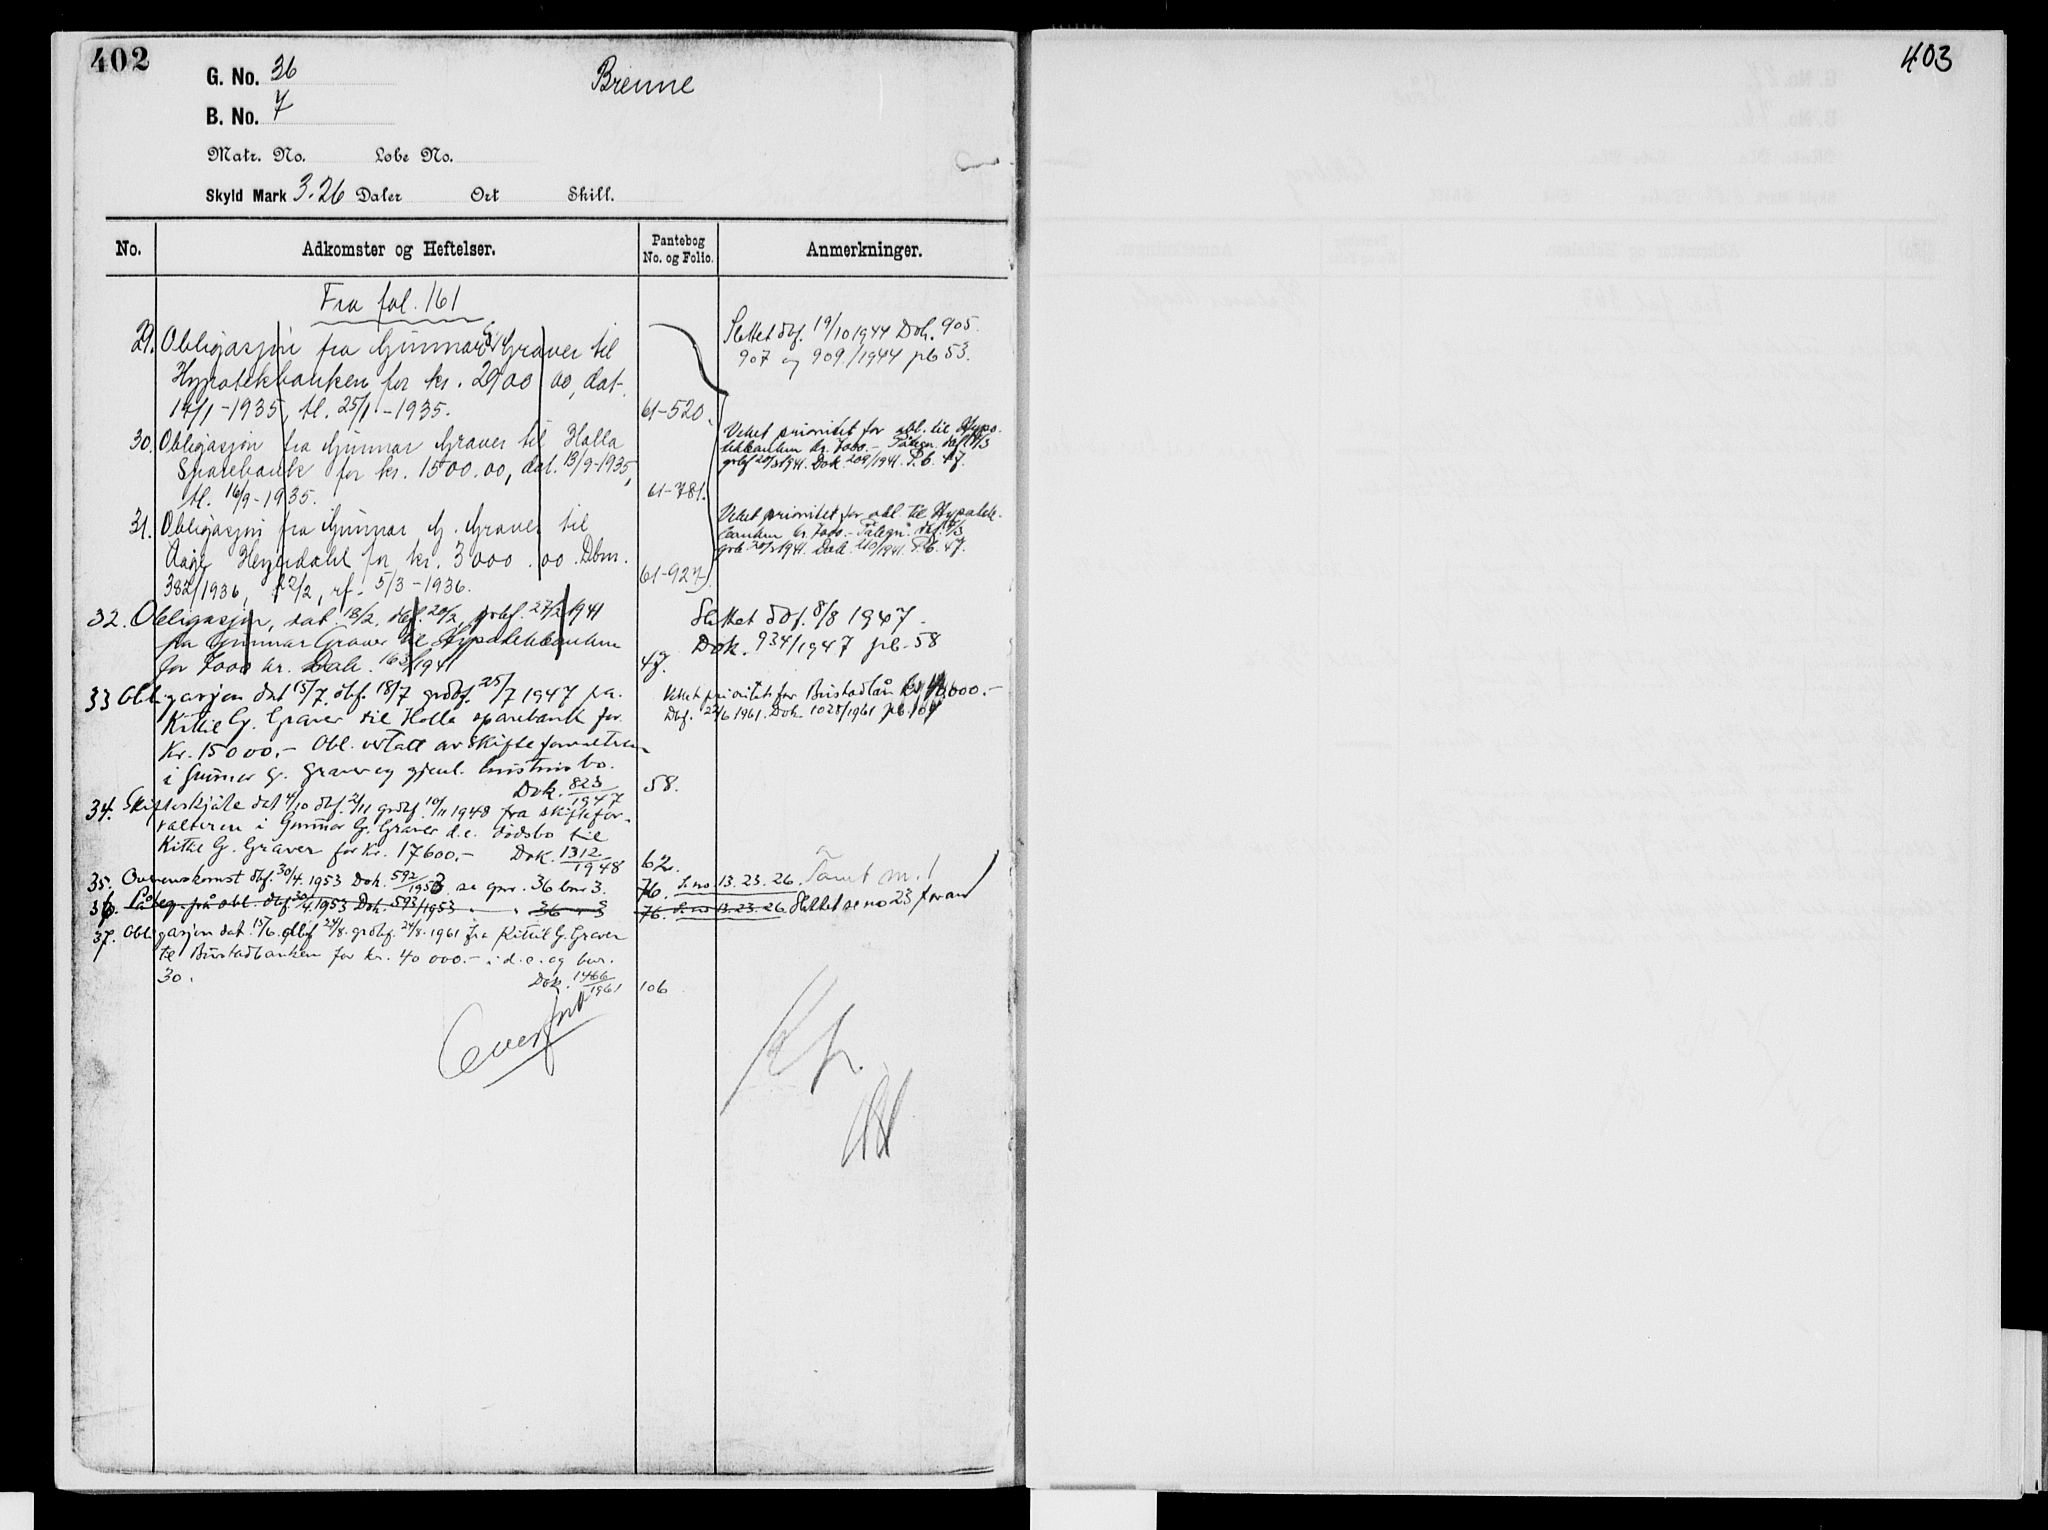 402
G. No. 36
Brenne
B. No. 7
Matr. No. Løbe No.
Skyld Mark 3.26 Daler Ort Skill.
No. Adkomster og Heftelser. Pantebog No. og Folio. Anmerkninger.
Fra fol. 161
29. Obligasjon fra Gunnar G. Graver til
Hypotekbanken for kr. 2900 00, dat.
14/1-1935, tl. 25/1-1935. 61-520.
Slettet dbf. 19/10 1944 Dok. 905.
907 og 909/1944 pb 53.
30. Obligasjon fra Gunnar Graver til Holla
Sparebank for kr. 1500.00, dat. 13/9-1935,
tl. 16/9-1935. 61-781.
Veket prioritet for obl. til Hypo-
tekbanken kr. 7000.- Påtegn. dbf.
grbf 20/3 1941. Dok. 209/1941. P.b. 47.
31. Obligasjon fra Gunnar G. Graver til
Aage Heyerdahl for kr. 3000.00. Dbnr.
382/1936, 22/2, rf. 5/3-1936. 61-927
Veket prioritet for obl. til Hypotek-
banken kr. 7000.- Påtegn. dbf.
grb. 20/3 1941. Dok. 210/1941. P.b. 47.
32. Obligasjon, dat. 18/2, dbf. 20/2, grbf. 27/2 1941
fra Gunnar Graver til Hypotekbanken
for 7000 kr. Dok. 163/1941 47.
Slettet dbf. 8/8 1947.
Dok. 934/1947 pb. 58
33 Obligasjon dat 15/7. dbf. 18/7 grdbf. 25/7 1947 fra
Kittil G. Graver til Holla sparebank for
Kr. 15000.- Obl. vedtatt av skifteforvalteren
i Gunnar G. Graver og gjenl. hustrus bo.
Dok. 823/1947 58.
Veket prioritet for Bustadlån kr 40,000.-
Dbf. 22/6 1961. Dok 1028/1961 pb. 104
34. Skifteskjøte dat 4/10 dbf. 2/11 grdbf. 10/11 1948 fra skiftefor-
valteren i Gunnar G. Graver d.e. dødsbo til
Kittil G. Graver for Kr. 17600.- Dok. 1312/1948 62.
35. Overenskomst dbf. 30/4. 1953 Dok. 592/1953 se gnr. 36 bnr 3. 76. S. no 13. 23. 26. Tomt m. 1
36. Påteg. på obl. dbf 30/4. 1953 Dok. 593/1953 " " 36 " 3 76. S. no 13. 23. 26 Slettet se no 23 foran
37. Obligasjon dat. 15/6. dbf 24/8. grdbf. 24/8. 1961 fra Kittil G. Graver
til Bustadbanken for kr. 40 000.- i d.e. og bnr.
30. Dok. 1466/1961 106
Overført
403